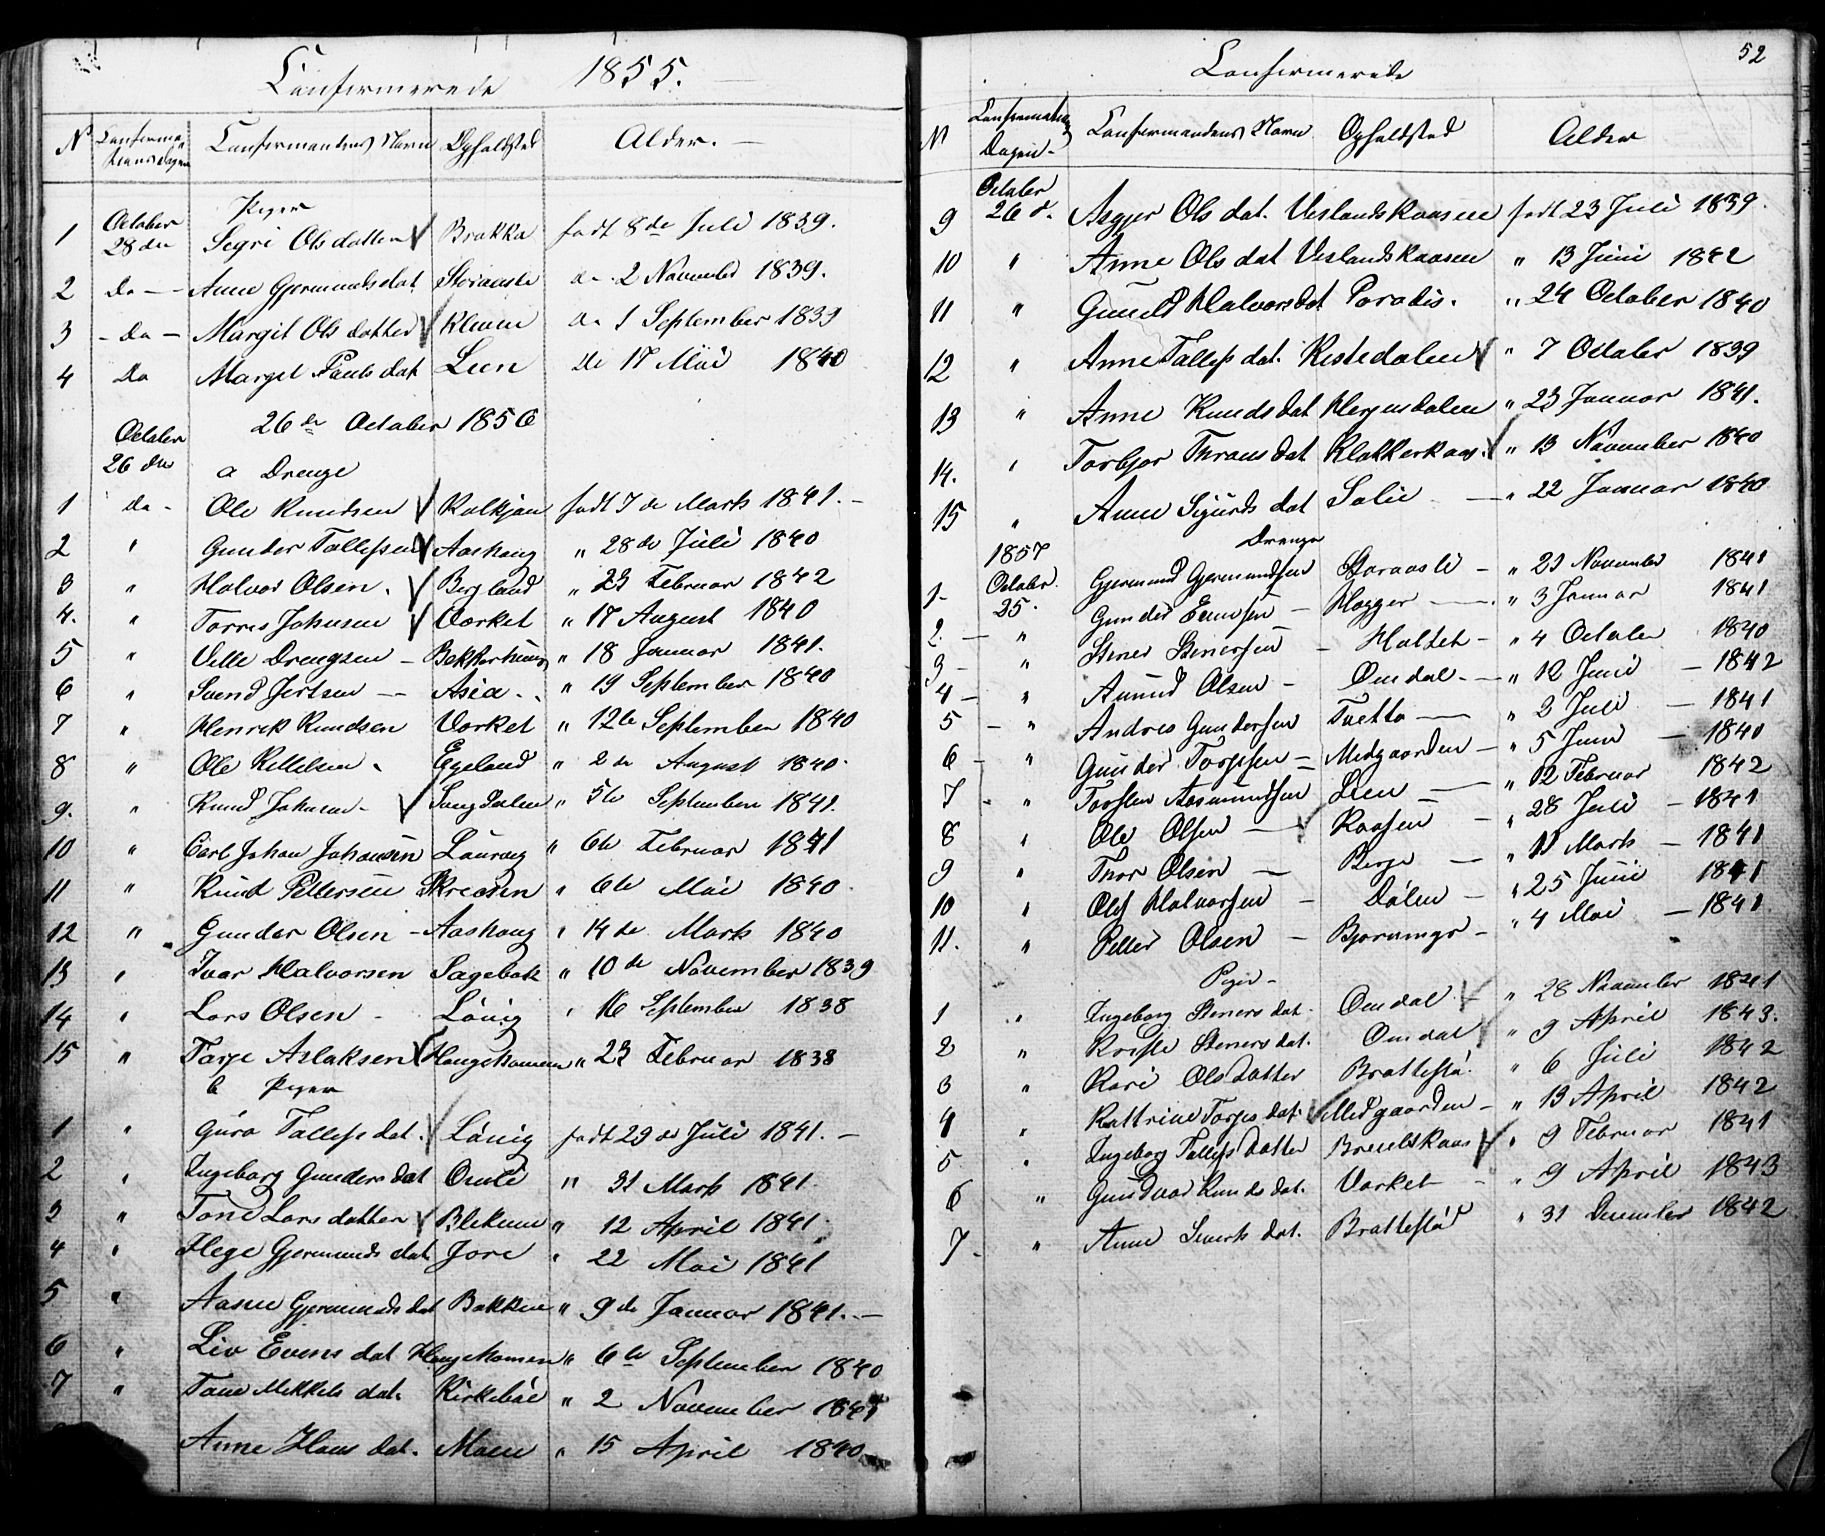 Confirmerede 1855.
N Confirmationsdagen Confirmandens Navn Opholdsted Alder.
Piger
1 October 28de Segri Olsdatter Brokka født 8de Juli 1839.
2 Do Anne Gjermundsdat Storaasle do 2 November 1839.
3 Do Margit Olsdatter Kleven do 1 September 1839
4 Do Margit Paulsdat Lien do 17 Mai 1840
26de October 1856
October 26de a Drenge
1 do Ole Knudsen Kalkjøn født 7de Marts 1841.
2 " Gunder Tallefsen Aashaug " 28de Juli 1840
3 " Halvor Olsen. Bergland " 23 Februar 1842
4. " Torres Johnsen Værket " 17 August 1840
5 " Velle Drengsen Bekkerhuus " 18 Januar 1841.
6 " Svend Jertsen Asia " 19 September 1840
7 " Henrik Knudsen Værket " 12te September 1840
8 " Ole Kittelsen Egeland " 2de August 1840.
9. " Knud Johnsen Langdalen " 5te September 1841.
10 " Carl Johan Johansen Lauvøig " 6te Februar 1841
11 " Knud Pettersen Skreosen " 6te Mai 1840
12 " Gunder Olsen Aashaug " 14de Marts 1840
13 " Ivar Halvorsen Sagebak " 10de November 1839
14 " Lars Olsen Løvig " 16 September 1838
15 " Tarje Aslaksen Haugekommen " 23 Februar 1838
b Piger
1 " Guro Tallefsdat. Løvig født 29de Juli 1841.
2 " Ingeborg Gundersdat Omli " 31 Marts 1841
3 " Tone Larsdatter Blekum " 12 April 1841
4 " Hege Gjermundsdat Jore " 22 Mai 1841
5 " Aasne Gjermundsdat Bakken " 9de Januar 1841.
6 " Liv Evensdat Haugekomen " 6te September 1840
7 " Tone Mikkelsdat. Kirkebøe " 2 November 1841
Anne Hansdat. Moen " 15 April 1840
52
Confirmerede
N Confirmations Dagen Confirmandens Navn Opholdsted Alder
9 October 26d. Asgjer Olsdat. Veslandskaasen født 23 Juli 1839.
10 " Anne Olsdat Veslandskaasen " 13 Juni 1842
11 " Gunild Halvorsdat Paradis. " 24 October 1840
12 " Anne Tallefsdat. Kistedalen " 7 October 1839
13 " Anne Knudsdat Hergusdalen " 23 Januar 1841.
14. " Torbjør Thronsdat Klokkerkaas. " 13 November 1840
15 " Anne Sigurdsdat Solie " 22 Januar 1840
1857 Drenge
1 October 25. Gjermund Gjermundsen Storaasli " 21 November 1841
2. " Gunder Evensen Hogger " 3 Januar 1841
3 " Stener Stenersen Holtet " 4 October 1840
4 " Amund Olsen Omdal " 12 Juni 1842
5 " Andres Gundersen Tvetto " 3 Juli 1841
6 " Gunder Torjesen Midgaarden " 5 Juni 1840
7 " Torsten Aasmundsen Lien " 12 Februar 1842
8 " Ole Olsen Kaasen " 28 Juli 1841
9 " Thor Olsen Berge " 11 Marts 1841
10 " Olef Halvorsen Dølen " 25 Juni 1841
11. " Petter Olsen Bjorunge " 4 Mai 1841
Piger
1 " Ingeborg Stenersdat. Omdal " 28 November 1841
2 " Kriste Stenersdat. Omdal " 9 April 1843.
3 " Kari Olsdatter Brattestø. " 6 Juli 1842
4 " Kattrine Torjesdat. Midgaarden " 13 April 1842
5 " Ingeborg Tallefsdatter Brendtkaas " 9 Februar 1841
6 " Gundvor Knudsdat. Værket " 9 April 1843
7 " Anne Siversdat. Brattestø " 31 December 1842